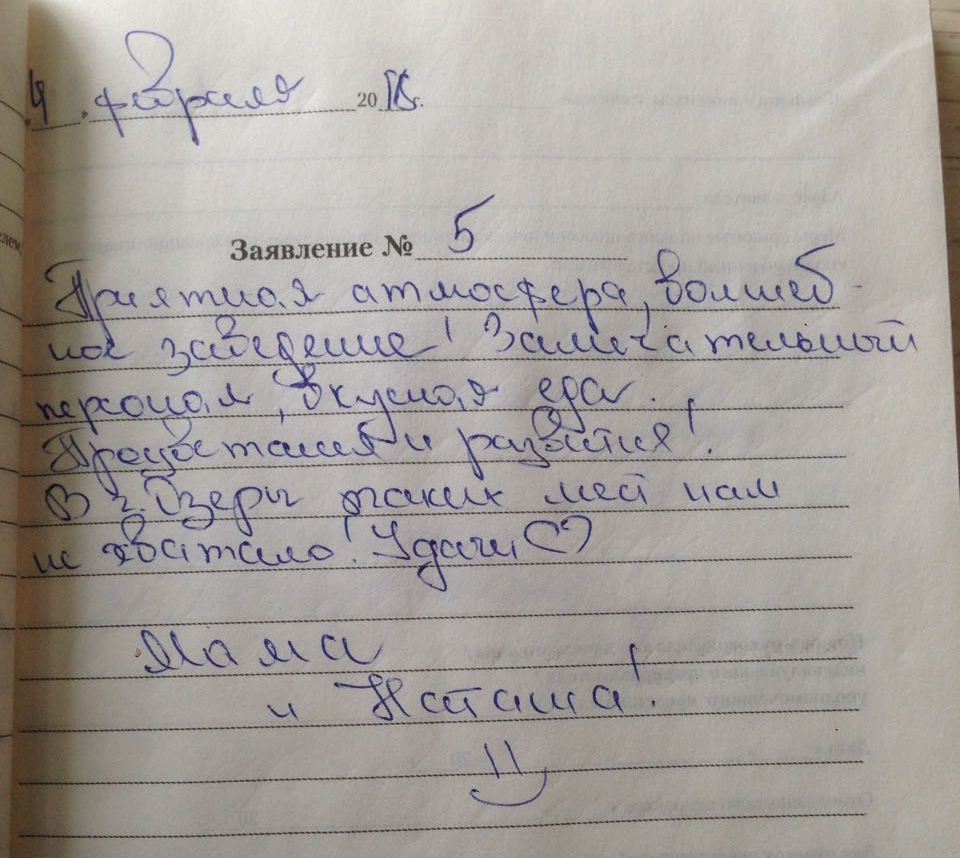 "4" февраля 2018г.
Заявление № 5
Приятная атмосфера, волшеб-
ное заведение! Замечательный
персонал, вкусная еда.
Процветания и развития!
В г. Озеры таких мест нам
не хватало! Удачи ♡
Мама
и Наташа!